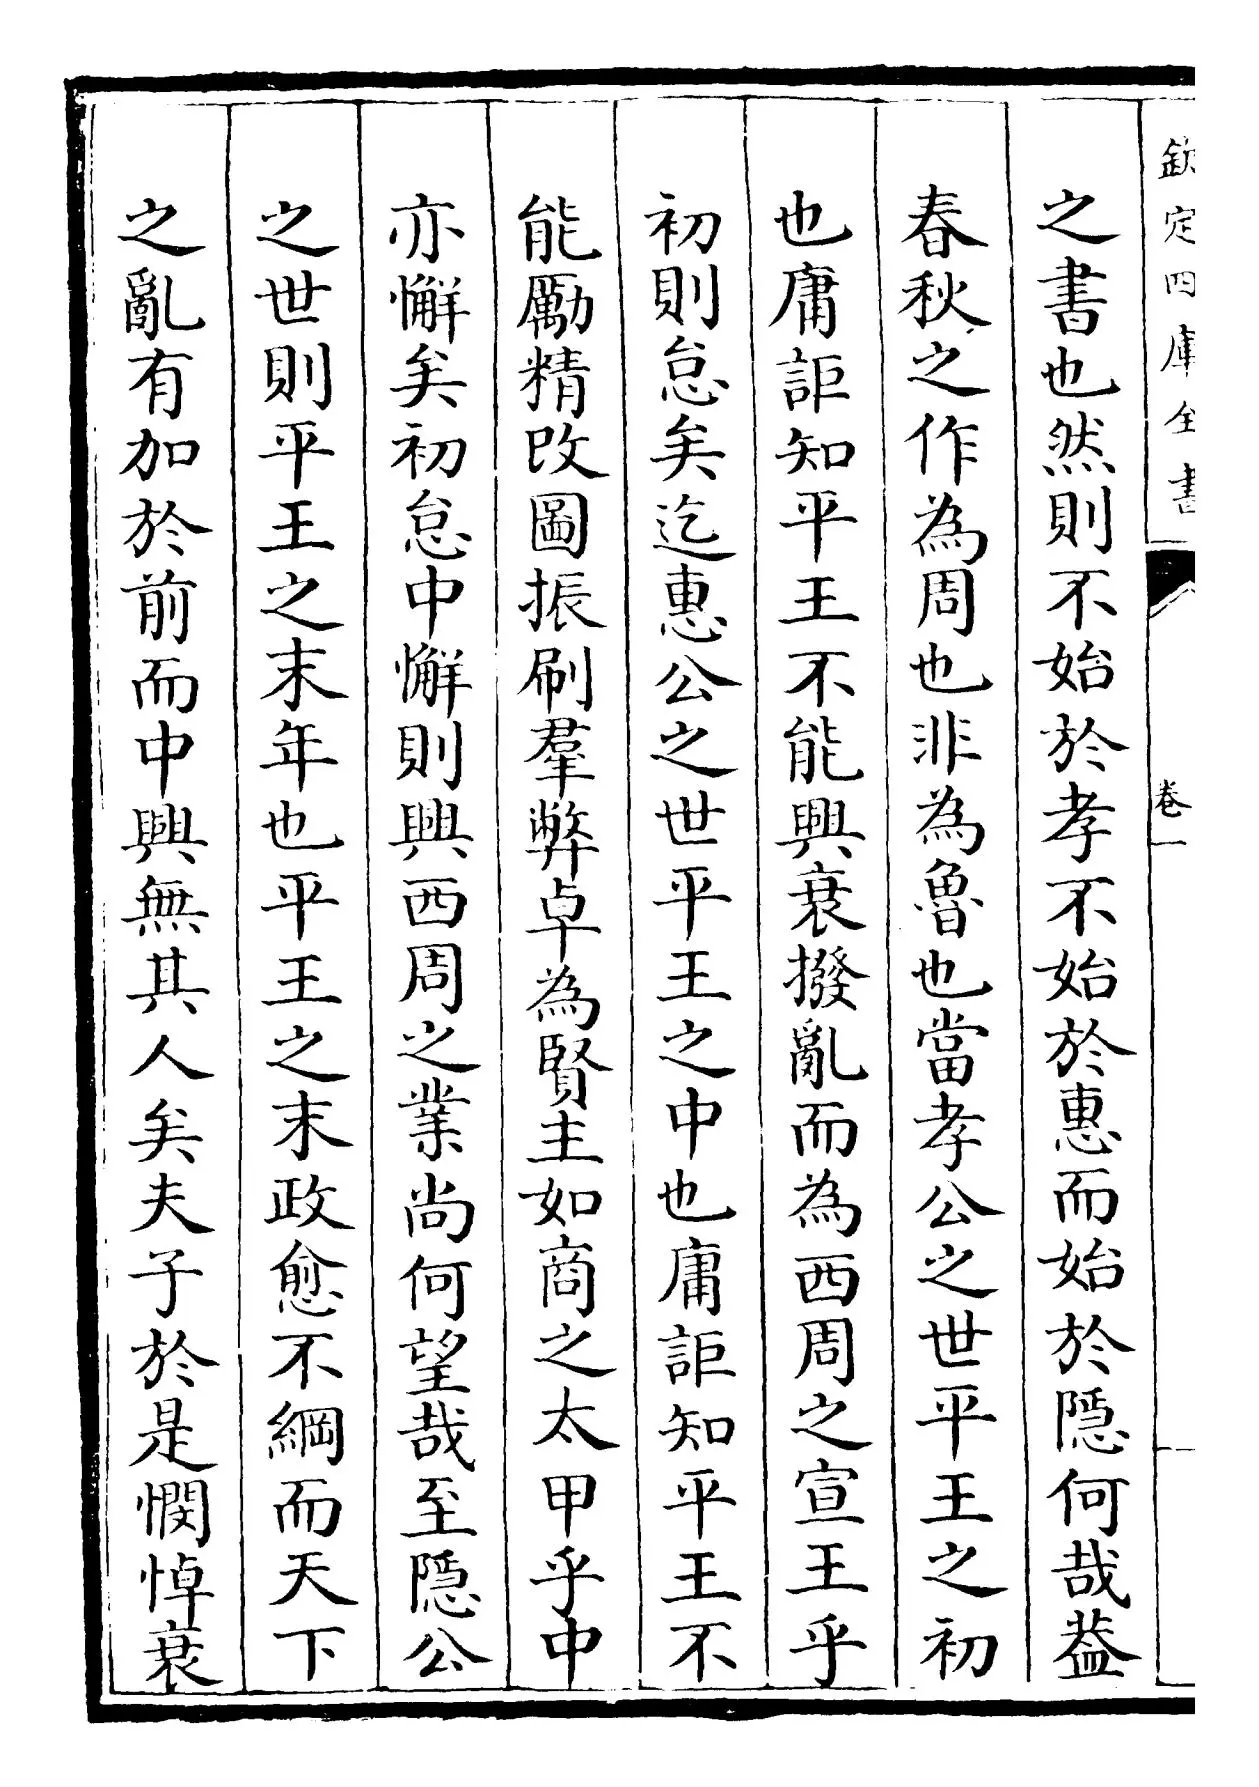 欽定四庫全書
卷一
之書也然則不始於孝不始於惠而始於隱何哉葢
春秋之作為周也非為魯也當孝公之世平王之初
也庸詎知平王不能興衰撥亂而為西周之宣王乎
初則怠矣迄惠公之世平王之中也庸詎知平王不
能勵精改圖振刷羣弊卓為賢主如商之太甲乎中
亦懈矣初怠中懈則興西周之業尚何望哉至隱公
之世則平王之末年也平王之末政愈不綱而天下
之亂有加於前而中興無其人矣夫子於是憫悼衰